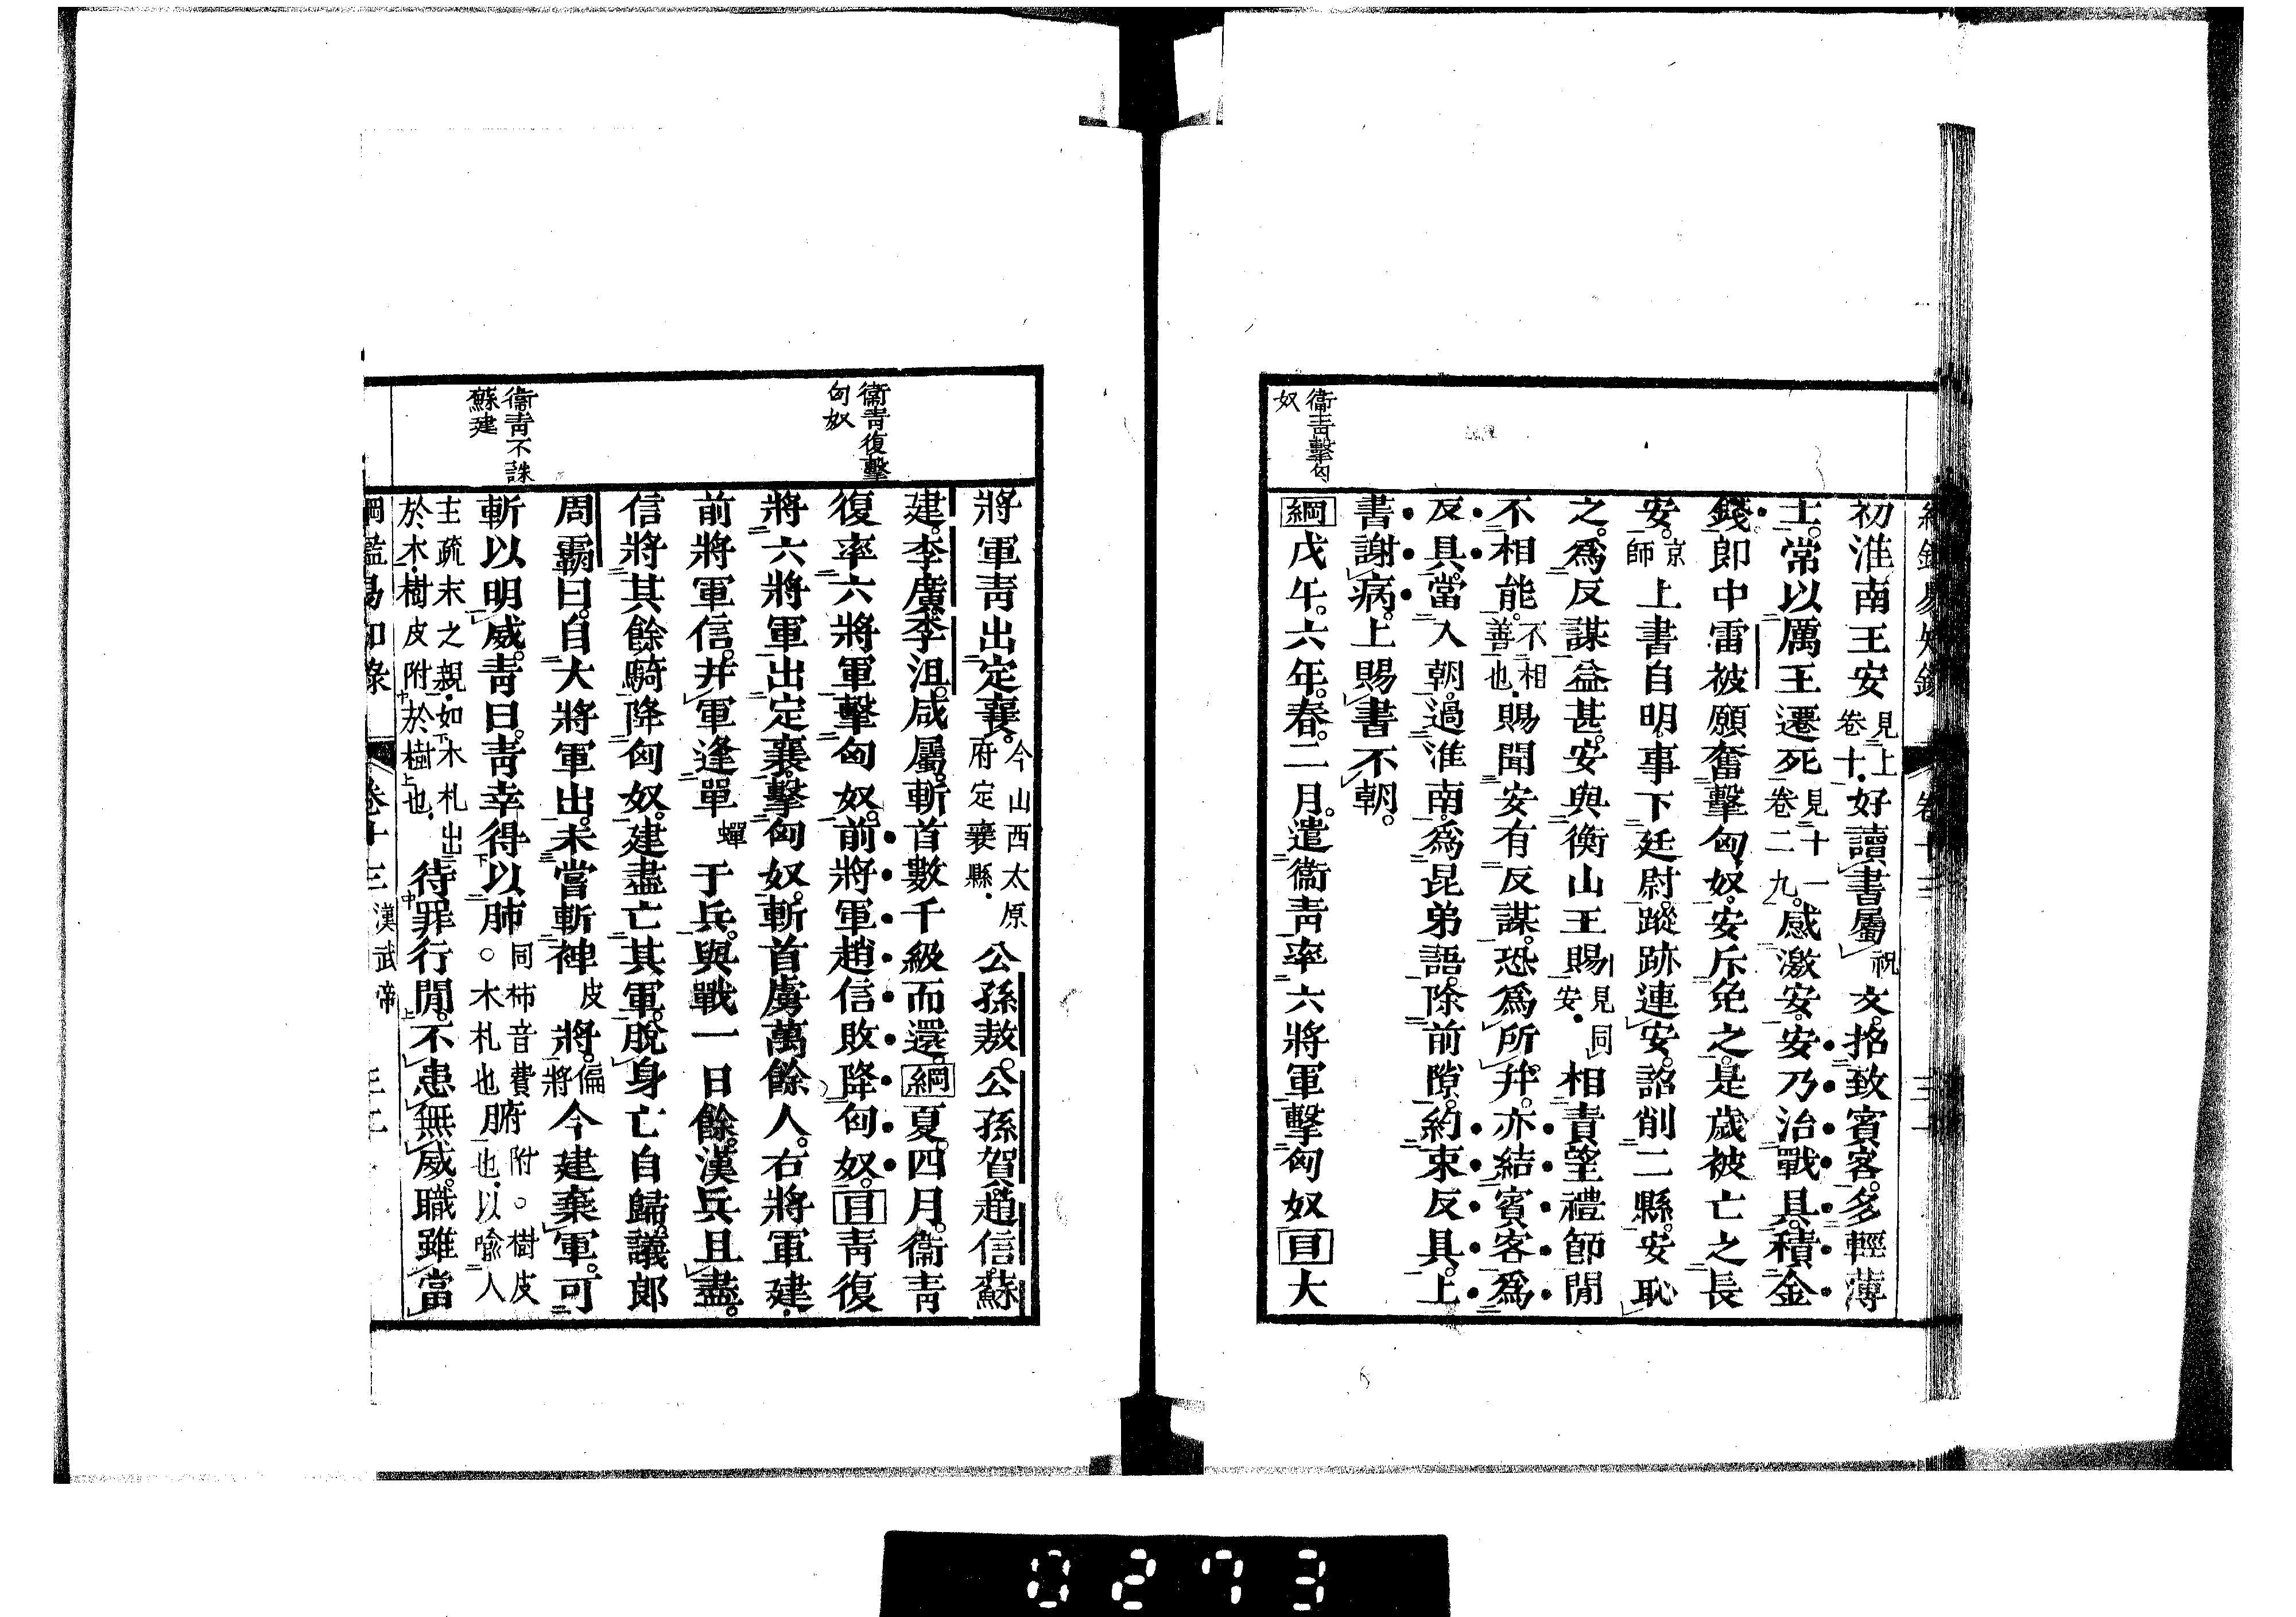 初淮南王安見上卷十好讀書屬祝文招致賓客多輕薄
士常以厲王遷死見十一卷二九感激安安乃治戰具積金
錢郎中雷被願奮擊匈奴安斥免之是歲被亡之長
安京師上書自明事下廷尉蹤跡連安詔削二縣安恥
之爲反謀益甚安與衡山王賜見同安相責望禮節閒
不相能不相善也賜聞安有反謀恐爲所幷亦結賓客爲
反具當入朝過淮南爲昆弟語除前隙約束反具上
書謝病上賜書不朝
衞靑擊匈奴
綱戊午六年春二月遣衞靑率六將軍擊匈奴目大
將軍靑出定襄今山西太原府定襄縣公孫敖公孫賀趙信蘇
建李廣李沮咸屬斬首數千級而還綱夏四月衞靑
衞靑復擊匈奴
復率六將軍擊匈奴前將軍趙信敗降匈奴目靑復
將六將軍出定襄擊匈奴斬首虜萬餘人右將軍建
前將軍信幷軍逢單蟬于兵與戰一日餘漢兵且盡
信將其餘騎降匈奴建盡亡其軍脫身亡自歸議郎
周霸曰自大將軍出未嘗斬裨皮將偏將今建棄軍可
衞靑不誅蘇建
斬以明威靑曰靑幸得以肺同柿音費府附○樹皮○木札也肺也以喩人
主疏末之親如木札出於木樹皮附於樹也待罪行閒不患無威職雖當
綱鑑易知錄 卷十三 漢武帝